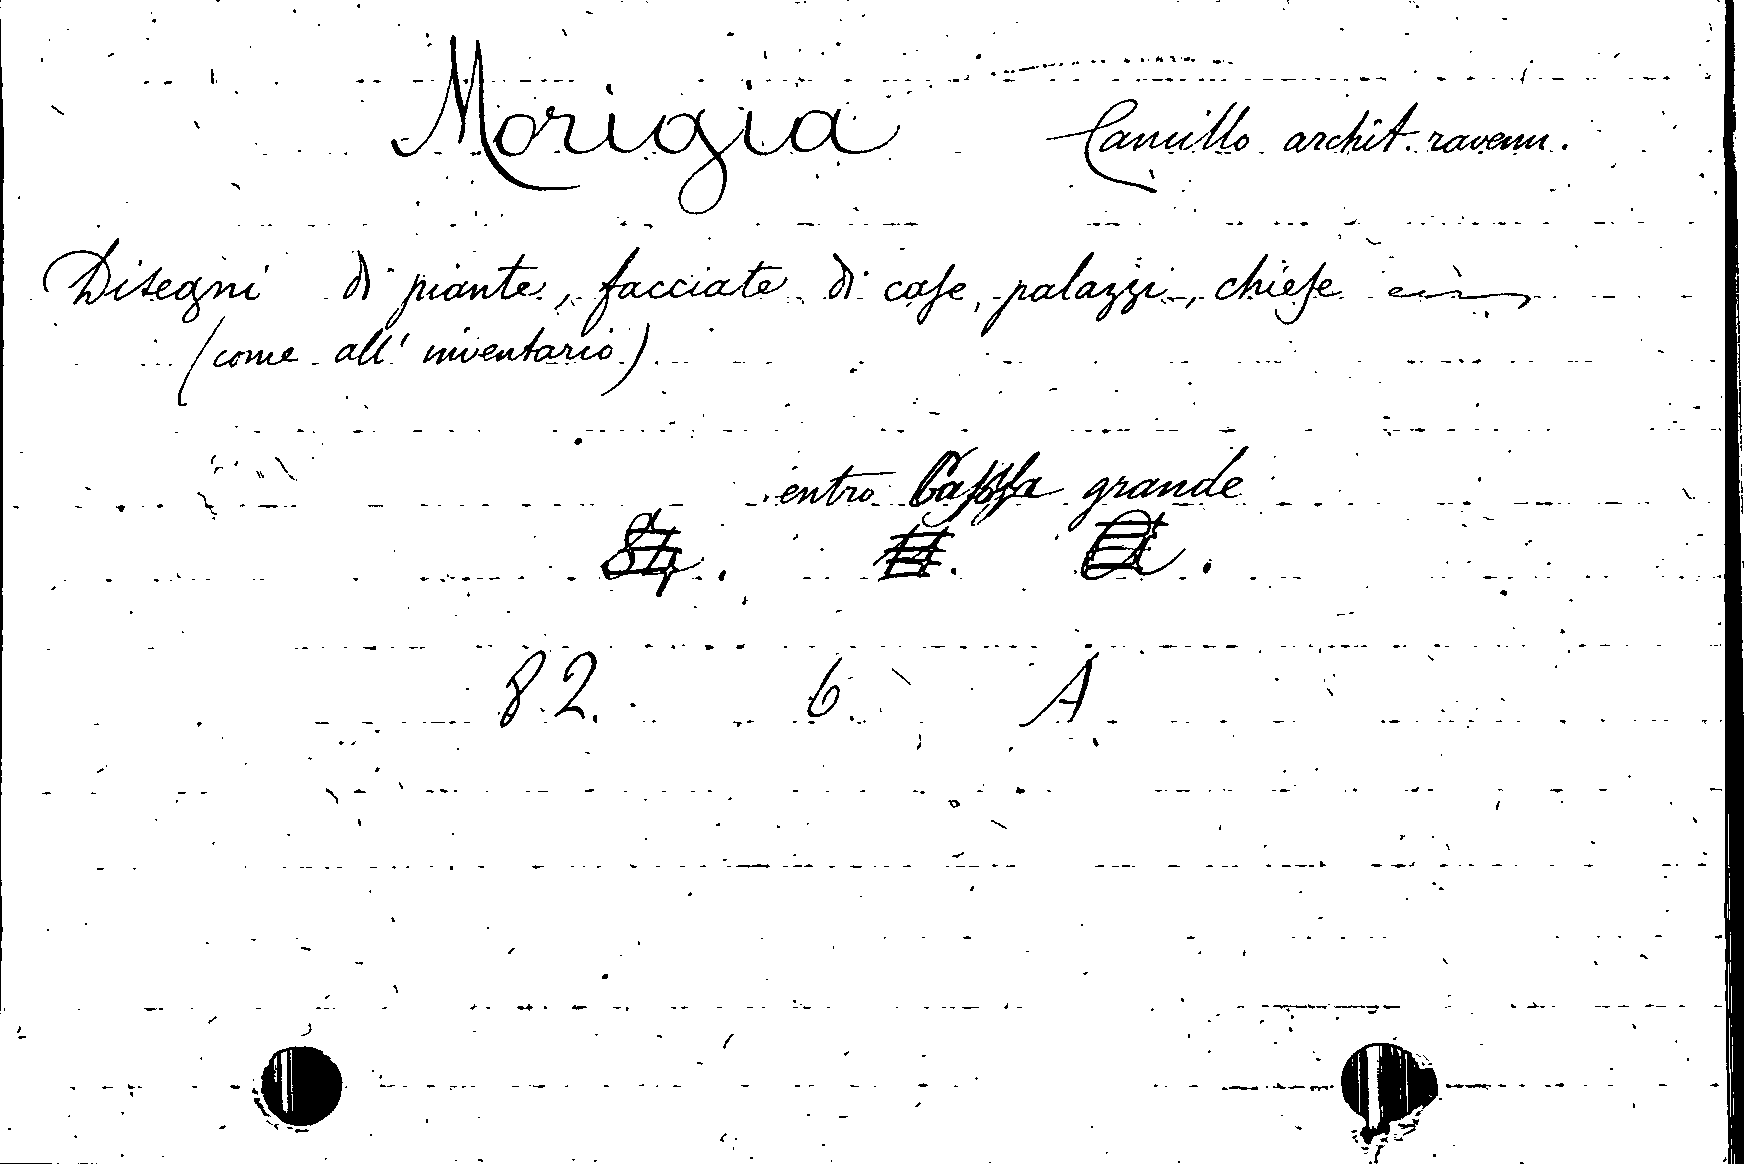 Morigia Camillo archit. ravenn.
Disegni di piante, facciate di case, palazzi, chiese
(come all' inventario)
entro Cassa grande
82. 6. A